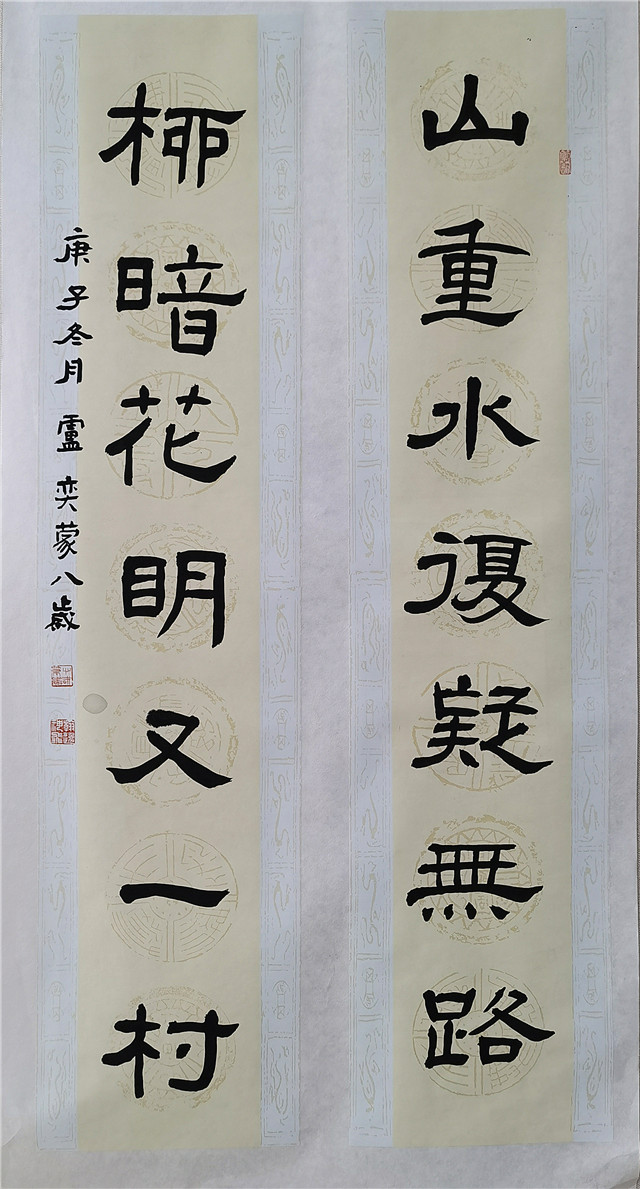 山重水復疑無路
柳暗花明又一村
庚子冬月 盧奕蒙八歲